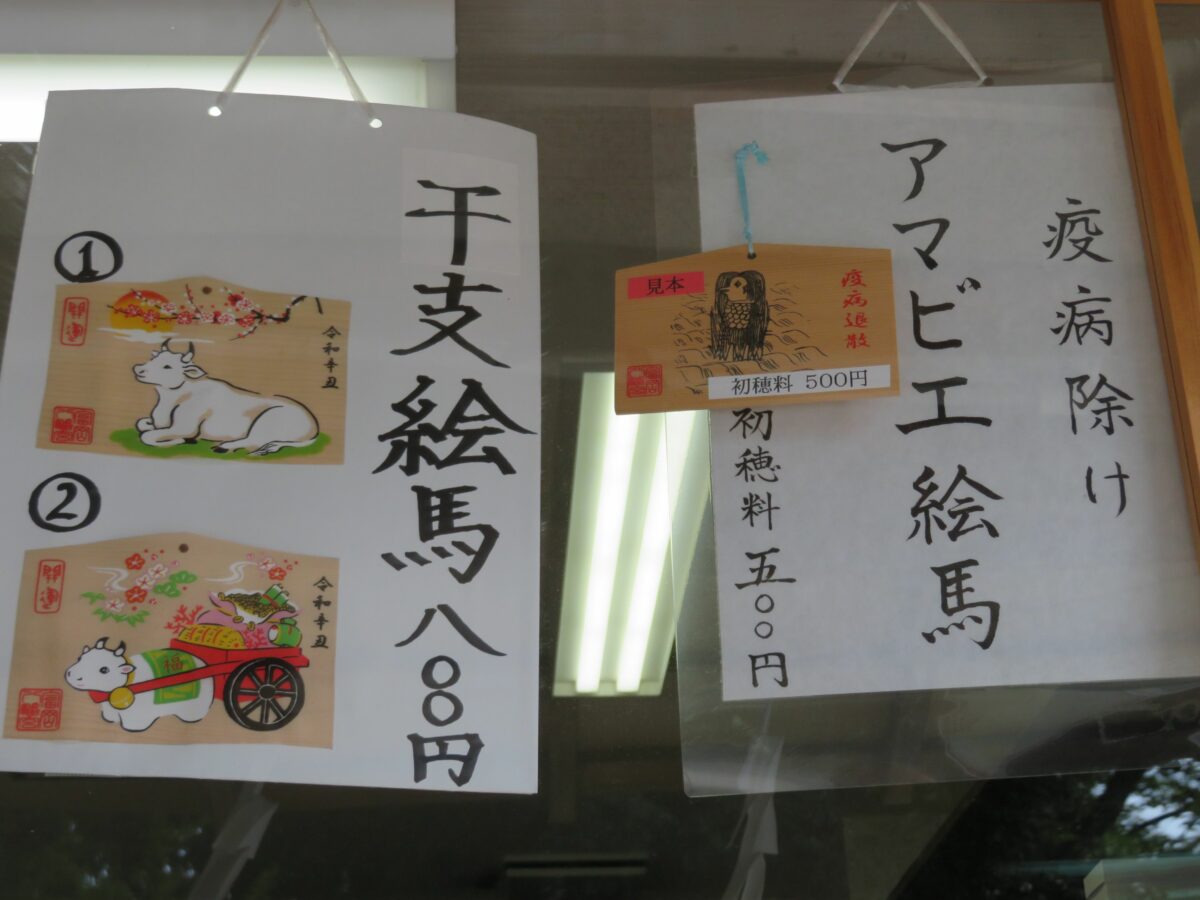 干支絵馬 八〇〇円
①
開運
令和辛丑
②
開運
令和辛丑
福
疫病除け
アマビエ絵馬
初穂料 五〇〇円
見本
疫病退散
初穂料 500円